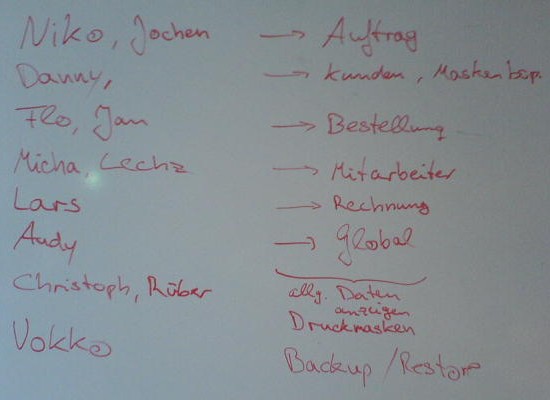 Niko, Jochen → Auftrag
Danny, → Kunden, Maskenbsp.
Flo, Jan → Bestellung
Micha, Lechz → Mitarbeiter
Lars → Rechnung
Andy → Global
Christoph, Rüber allg. Daten
anzeigen
Druckmasken
Vokko
Backup / Restore